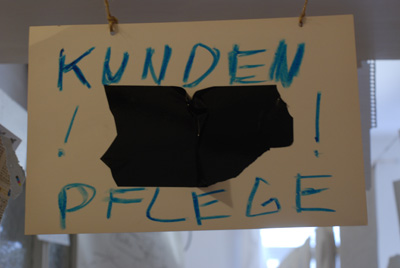 KUNDEN
! !
PFLEGE